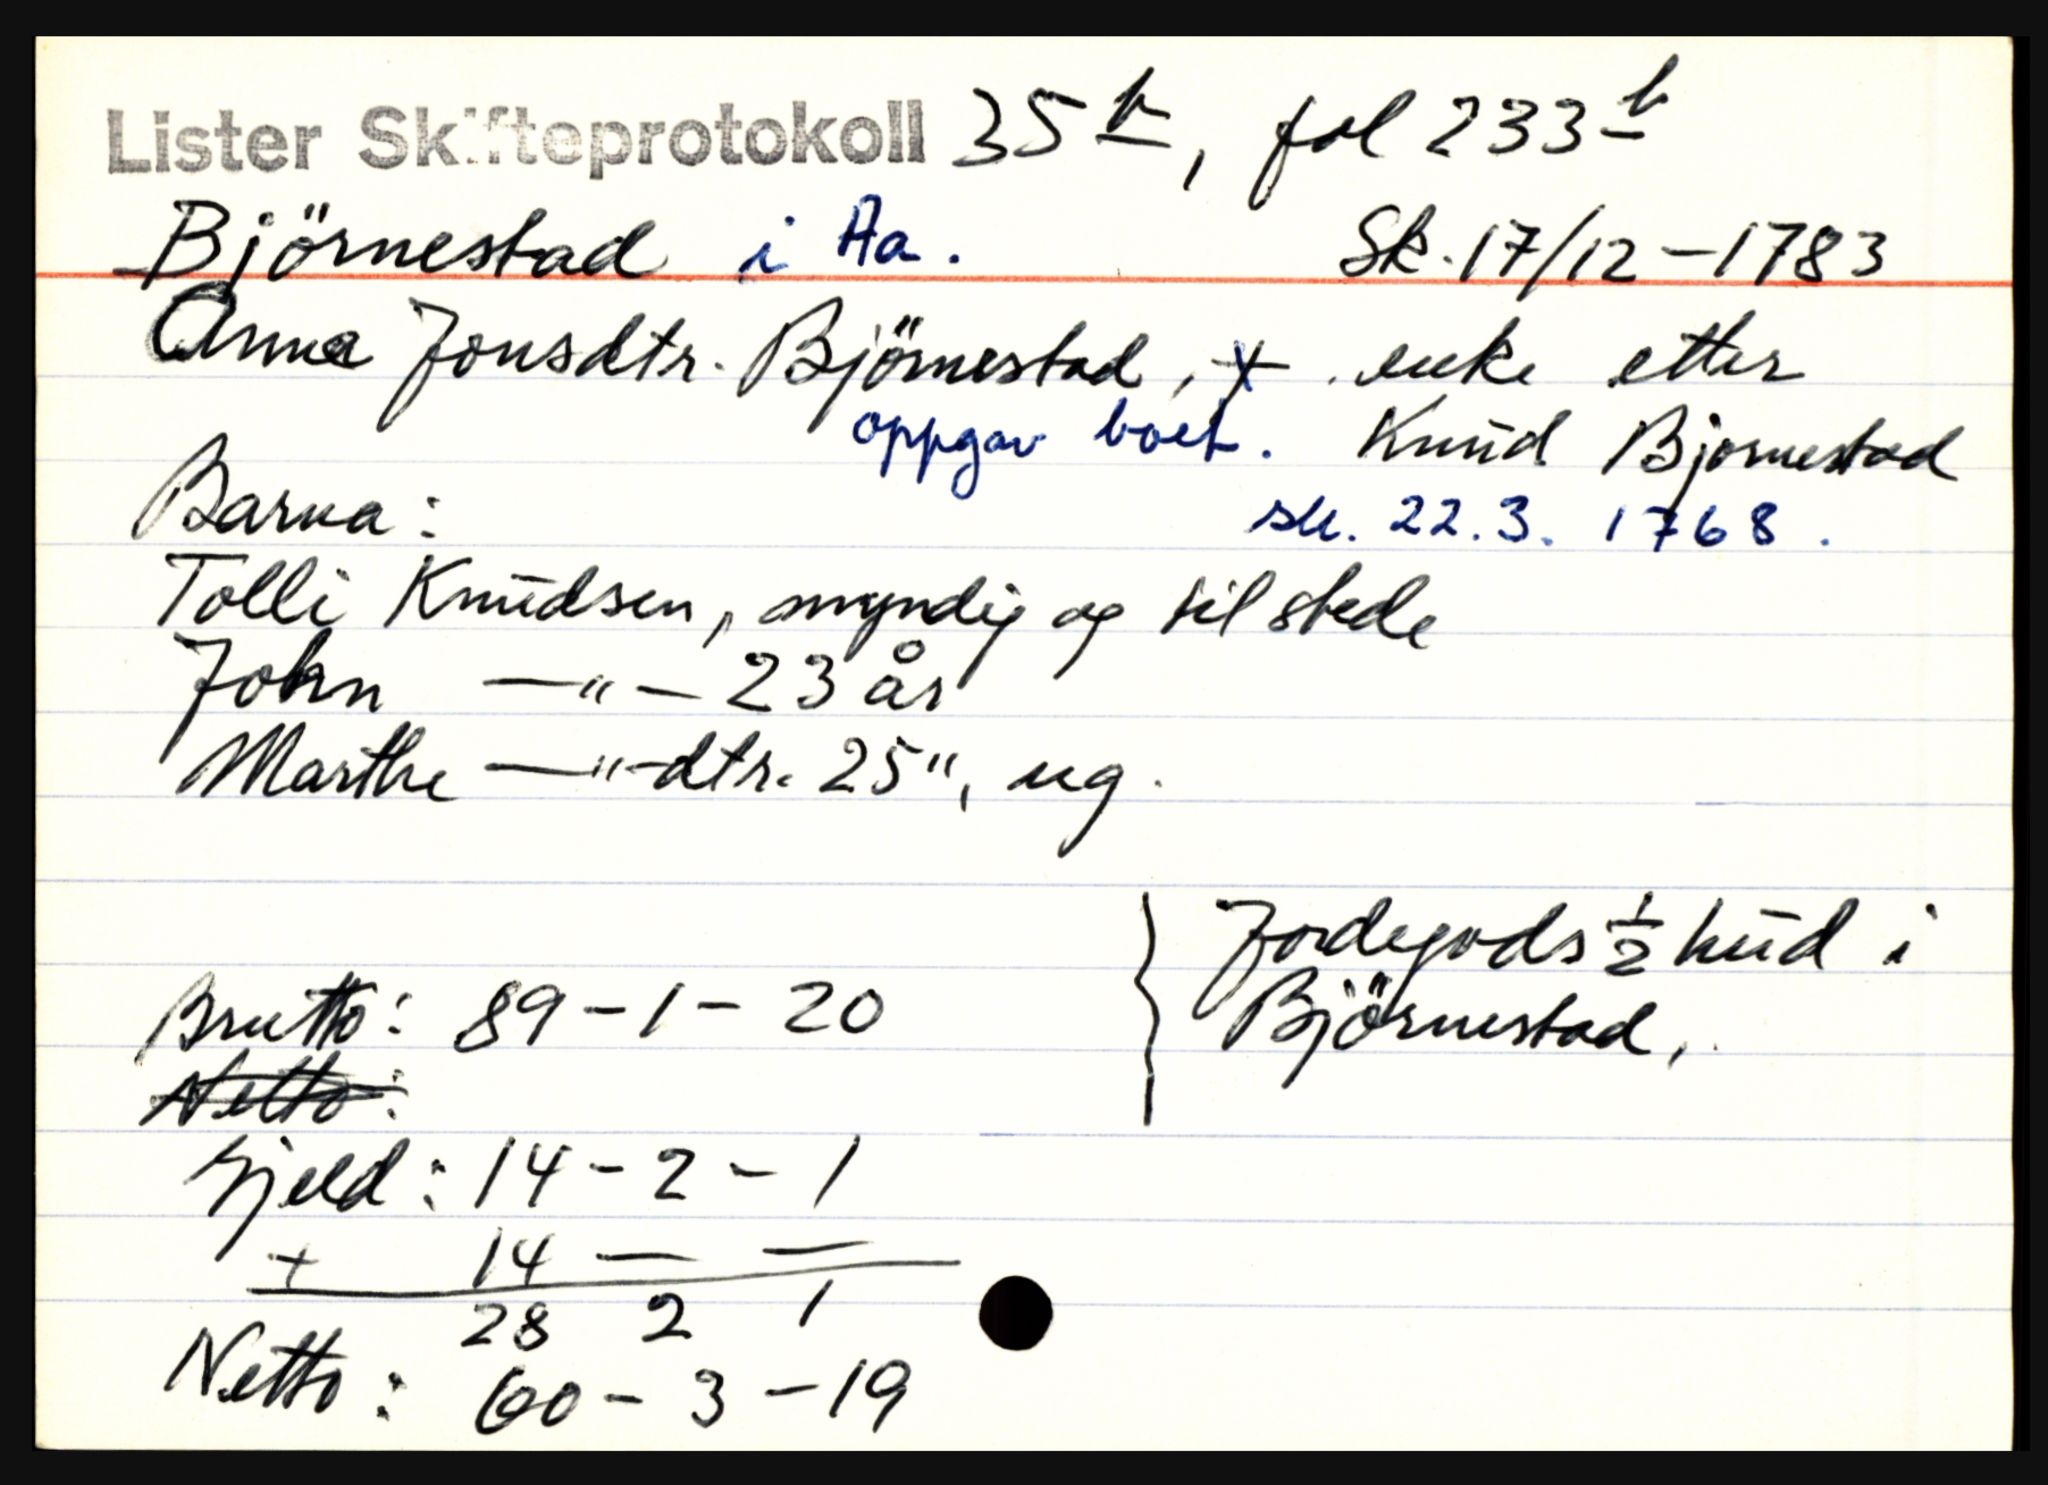 Lister Skifteprotokoll 35b, fol 233b
Björnestad i Aa. Sk. 17/12-1783
Anna Jonsdtr. Björnestad, + enke etter
oppgav boet. Knŭd Bjornestad
Barna: sk. 22.3. 1768.
Tolli Knŭdsen, myndig og til stede
John —"— 23 år
Marthe —"-dtr. 25", ug.
Jordegods ½ hŭd i
Björnestad,
Brutto: 89-1-20
Netto:
Gjeld: 14-2-1
+ 14 — —
28 2 1
Netto: 60-3-19